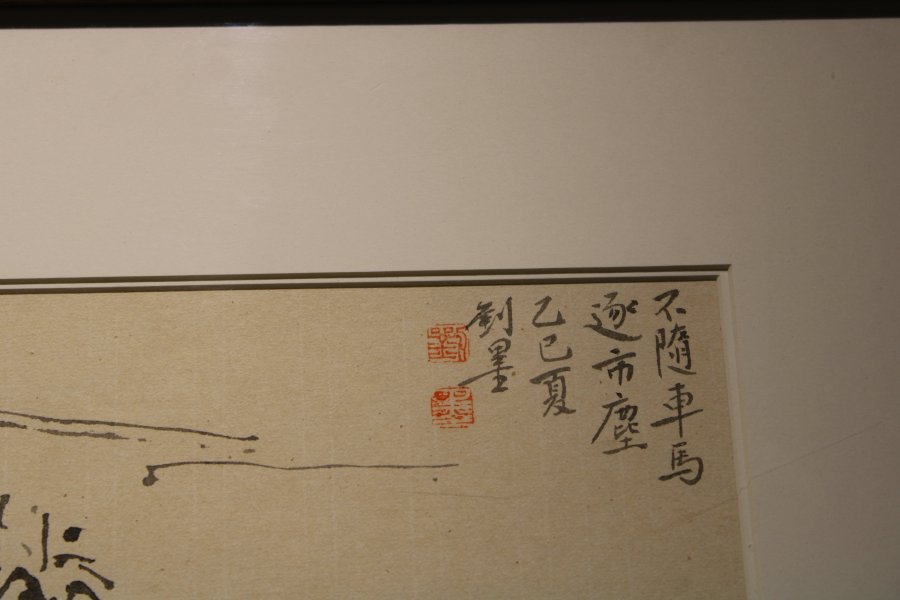 不隨車馬
逐市塵
乙巳夏
劉墨